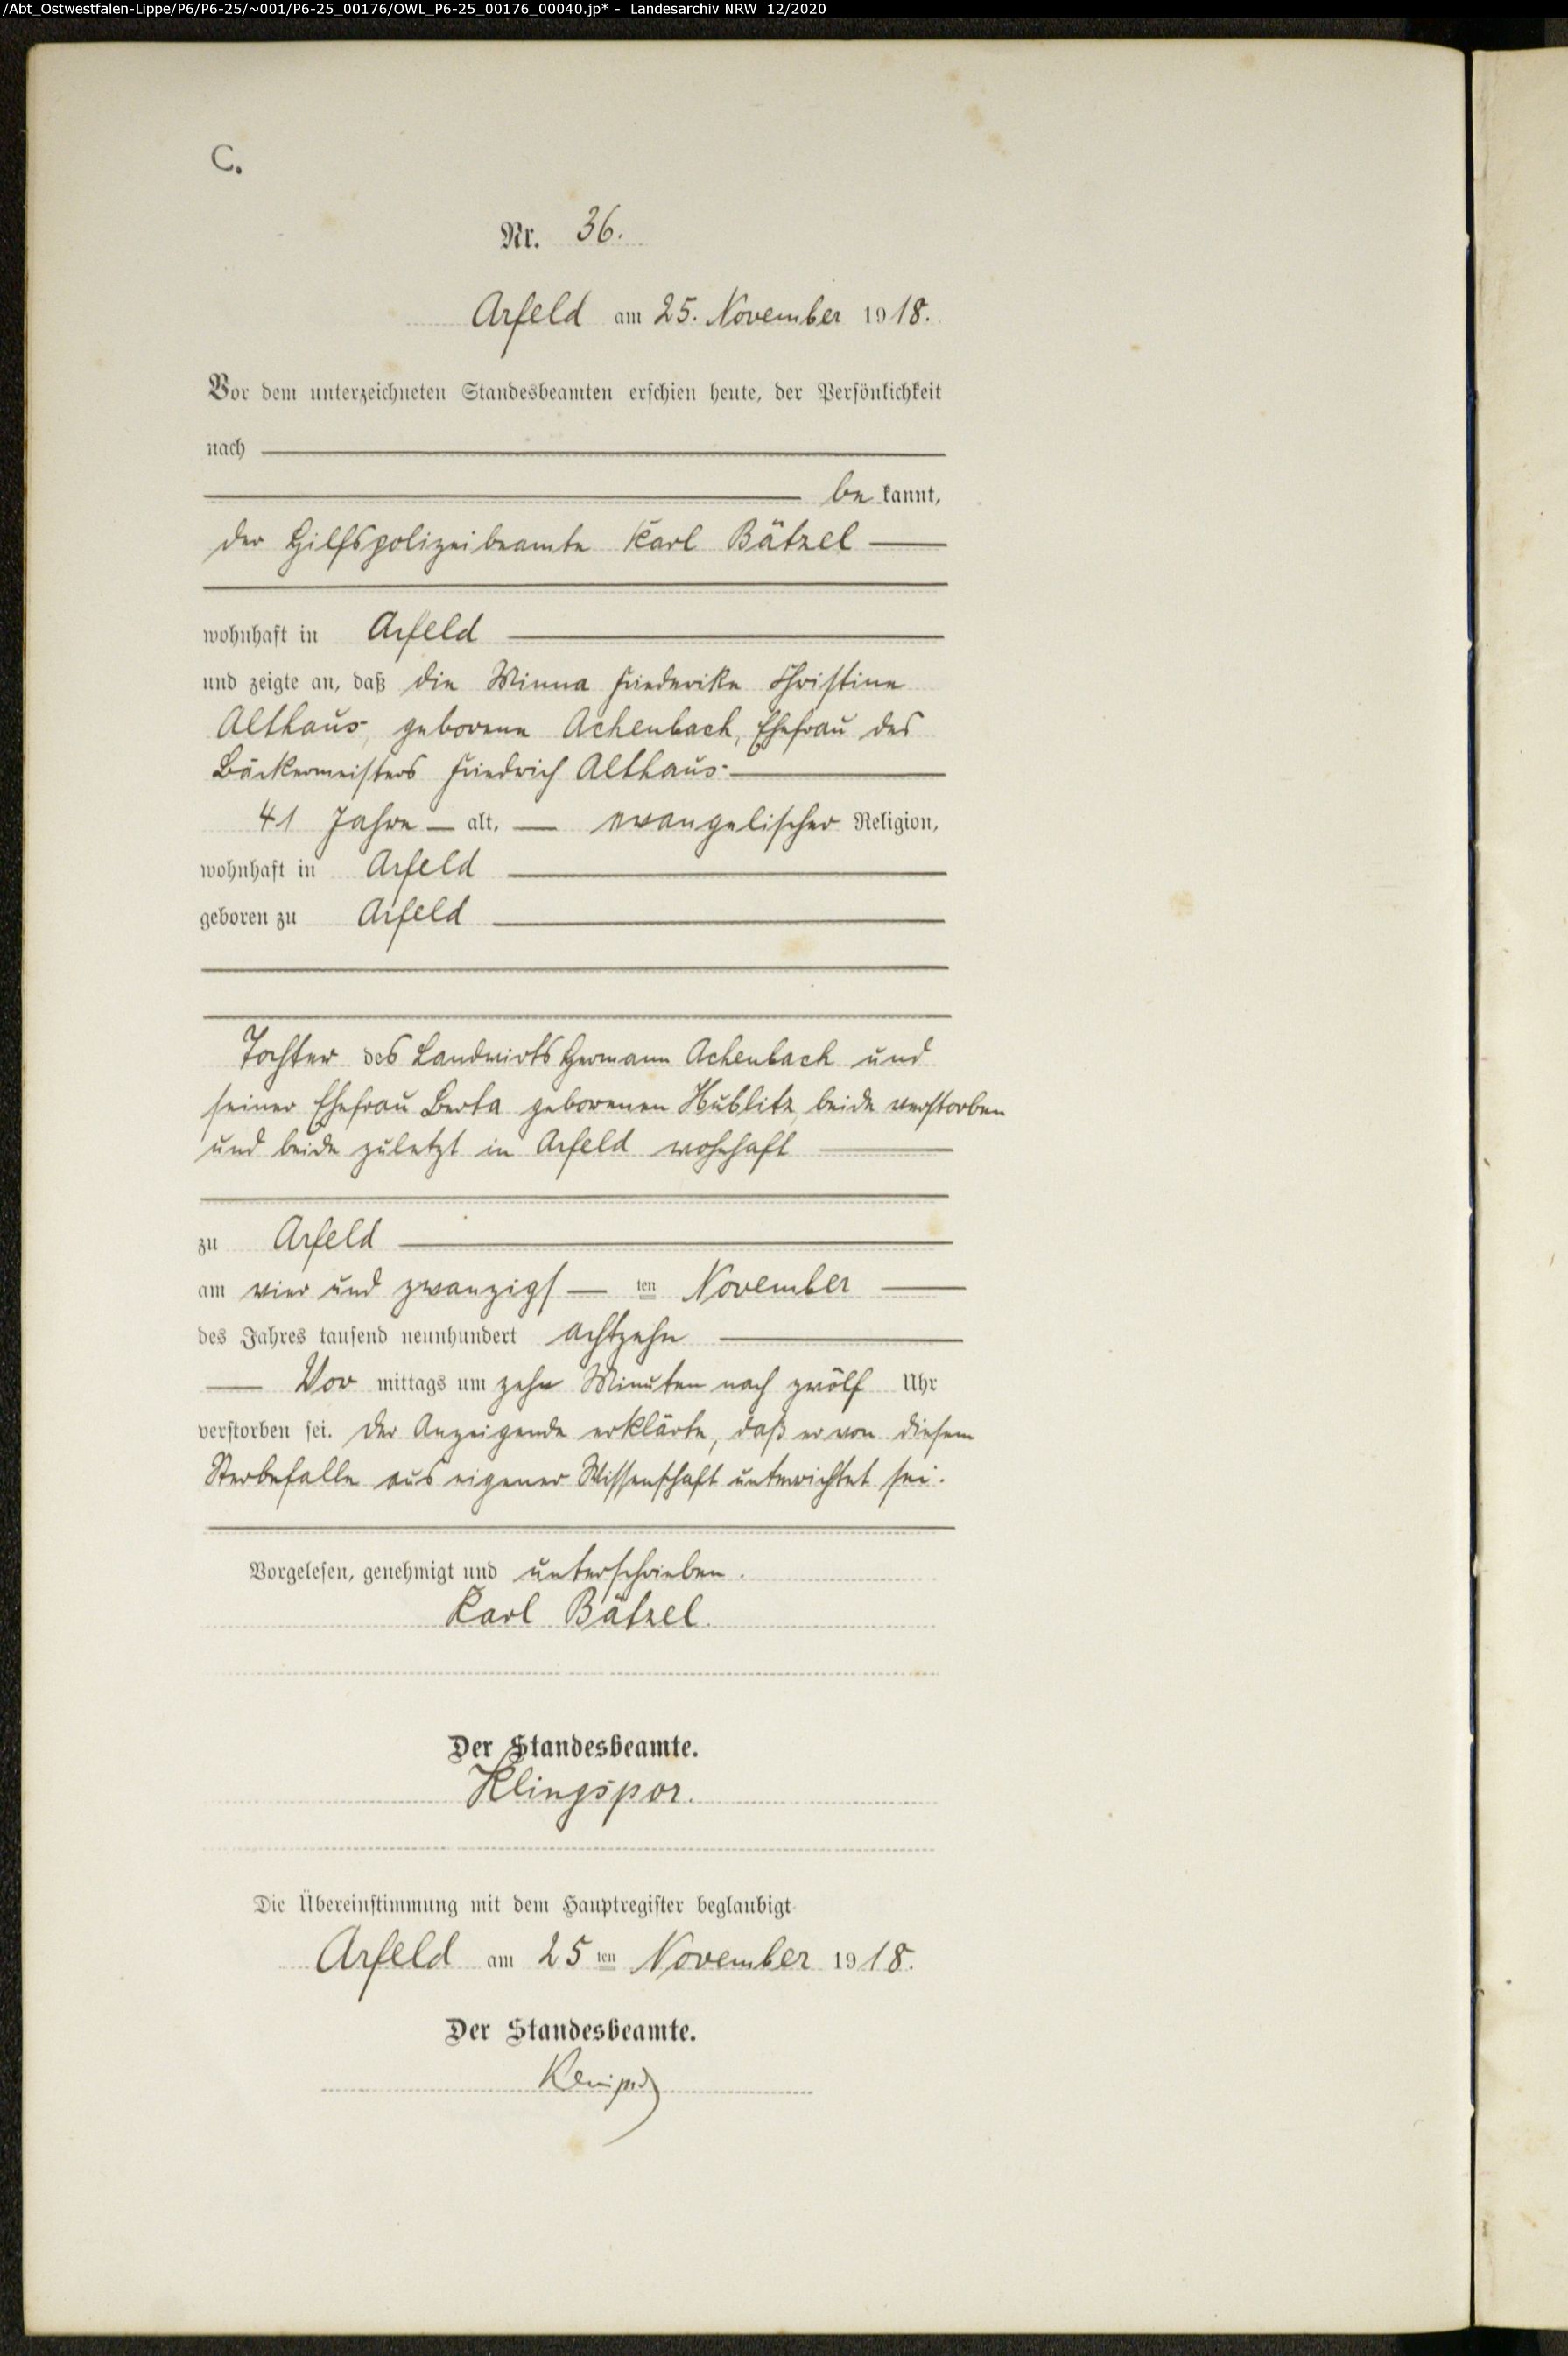 /Abt_Ostwestfalen-Lippe/P6/P6-25/~001/P6-25_00176/OWL_P6-25_00176_00040.jp* - Landesarchiv NRW 12/2020
C.
Nr. 36.
Arfeld am 25. November 1918.
Vor dem unterzeichneten Standesbeamten erschien heute, der Persönlichkeit
nach
be kannt,
der Hilfspolizeibeamte Karl Bätzel
wohnhaft in Arfeld
und zeigte an, daß die Minna Friederike Christine
Althaus, geborene Achenbach, Ehefrau des
Bäckermeisters Friedrich Althaus
41 Jahre alt, evangelischer Religion,
wohnhaft in Arfeld
geboren zu Arfeld
Tochter des Landwirts Hermann Achenbach und
seiner Ehefrau Berta geborenen Hublitz, beide verstorben
und beide zuletzt in Arfeld wohnhaft
zu Arfeld
am vier und zwanzigs ten November
des Jahres tausend neunhundert achtzehn
Vor mittags um zehn Minuten nach zwölf Uhr
verstorben sei. Der Anzeigende erklärte, daß er von diesem
Sterbefalle aus eigener Wissenschaft unterrichtet sei.
Vorgelesen, genehmigt und unterschrieben.
Karl Bätzel.
Der Standesbeamte.
Klingspor.
Die Übereinstimmung mit dem Hauptregister beglaubigt
Arfeld am 25 ten November 1918.
Der Standesbeamte.